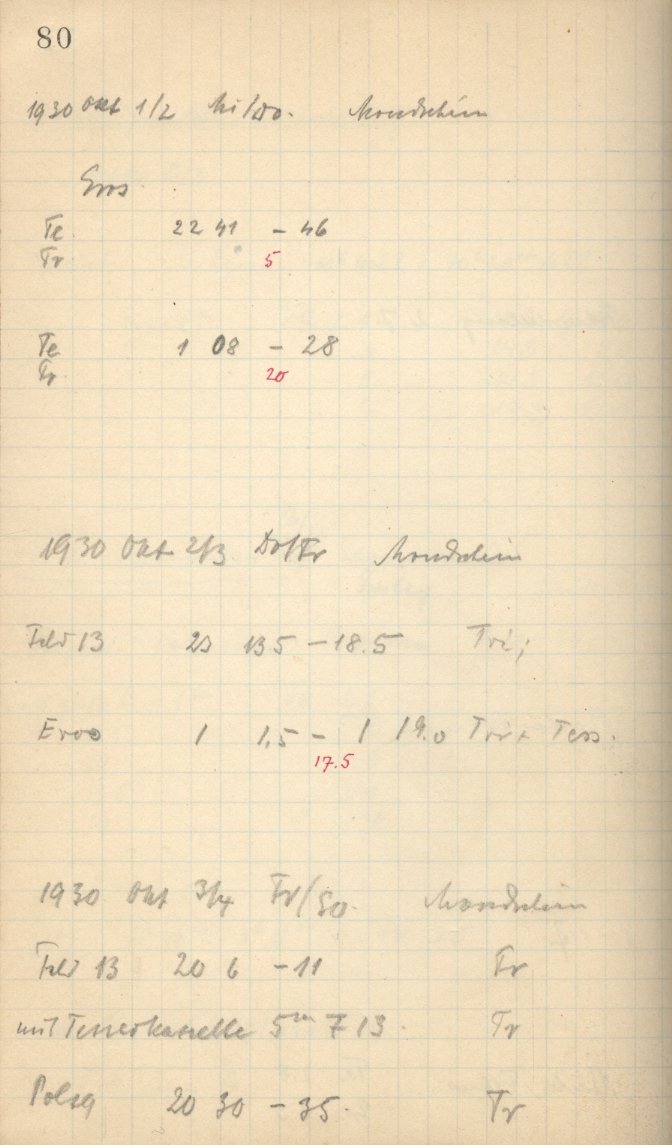 80
1930 Okt 1/2 Mi/Do. Mondschein
Eros
Te 22 41 - 46
Tr 5
Te 1 08 - 28
Tr 20
1930 Okt 2/3 Do/Fr Mondschein
Feld 13 13.5 - 18.5 Tri;
Eros 1 1.5 - 1 19.0 Tri + Tess.
17.5
1930 Okt 3/4 Fr/So. Mondschein
Feld 13 20 6 - 11 Tr
mit Tesserkassette 5m F 13. Tr
20 30 - 35. Tr